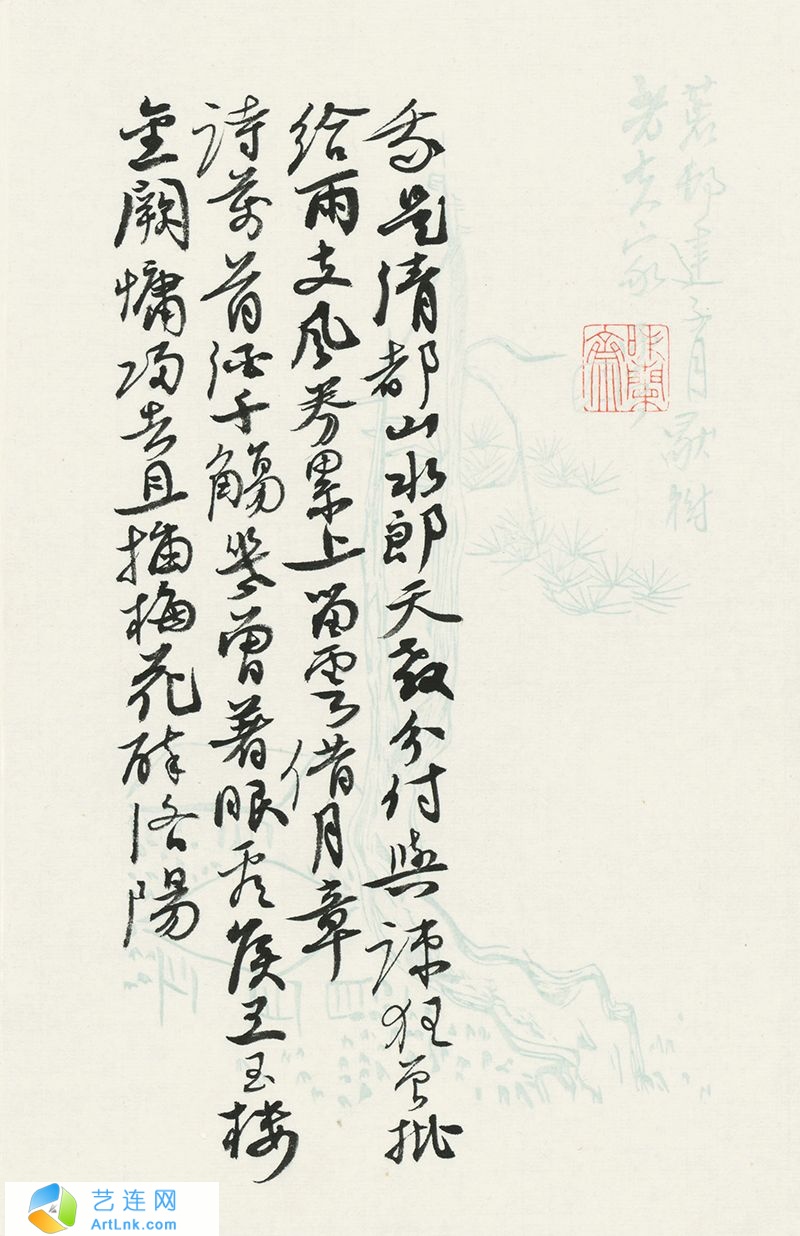 我是清都山水郎天教分付與疎狂曾批
給雨支風券累上留雲借月章
詩萬首酒千觴幾曾著眼看侯王玉樓
金闕慵歸去且插梅花醉洛陽
艺连网
ArtLnk.com